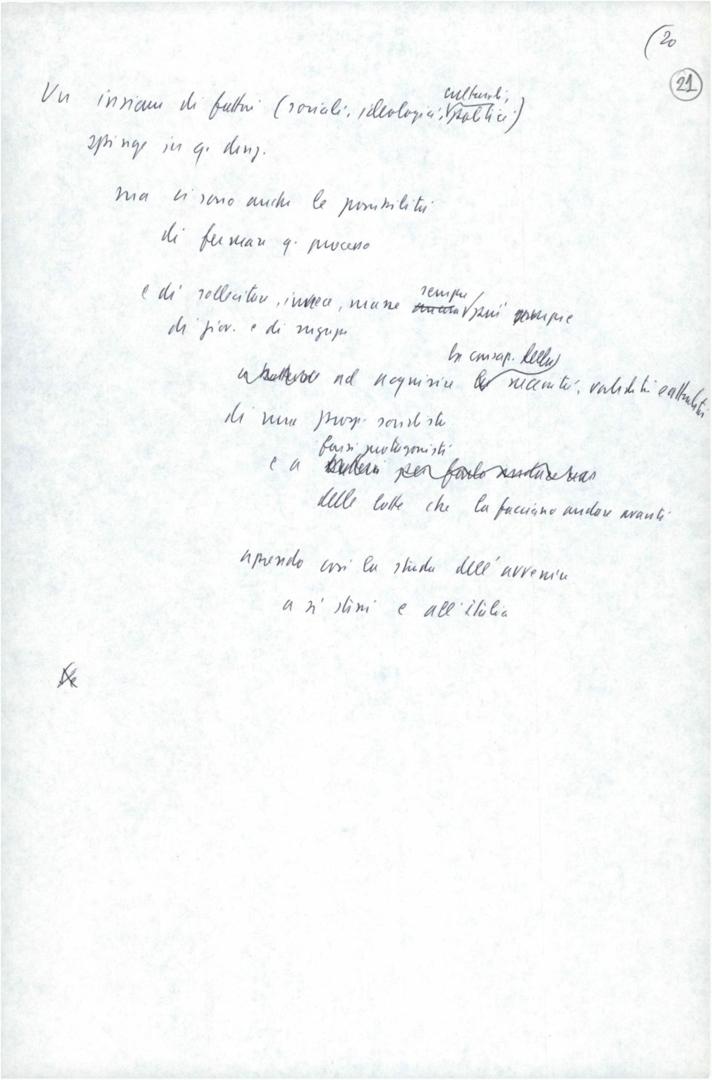 (20
21
Un insieme di fattori (sociali, ideologici, culturali, politici)
spinge in q. direz.
ma ci sono anche le possibilità
di fermare q. processo
e di sollecitare, invece, masse sempre più ampie
di giov. e di ragazze
ad acquisire la consap. della necessità, validità e attualità
di una prosp. socialista
e a farsi protagonisti
delle lotte che la facciano andare avanti
aprendo così la strada dell'avvenire
a sé stessi e all'italia